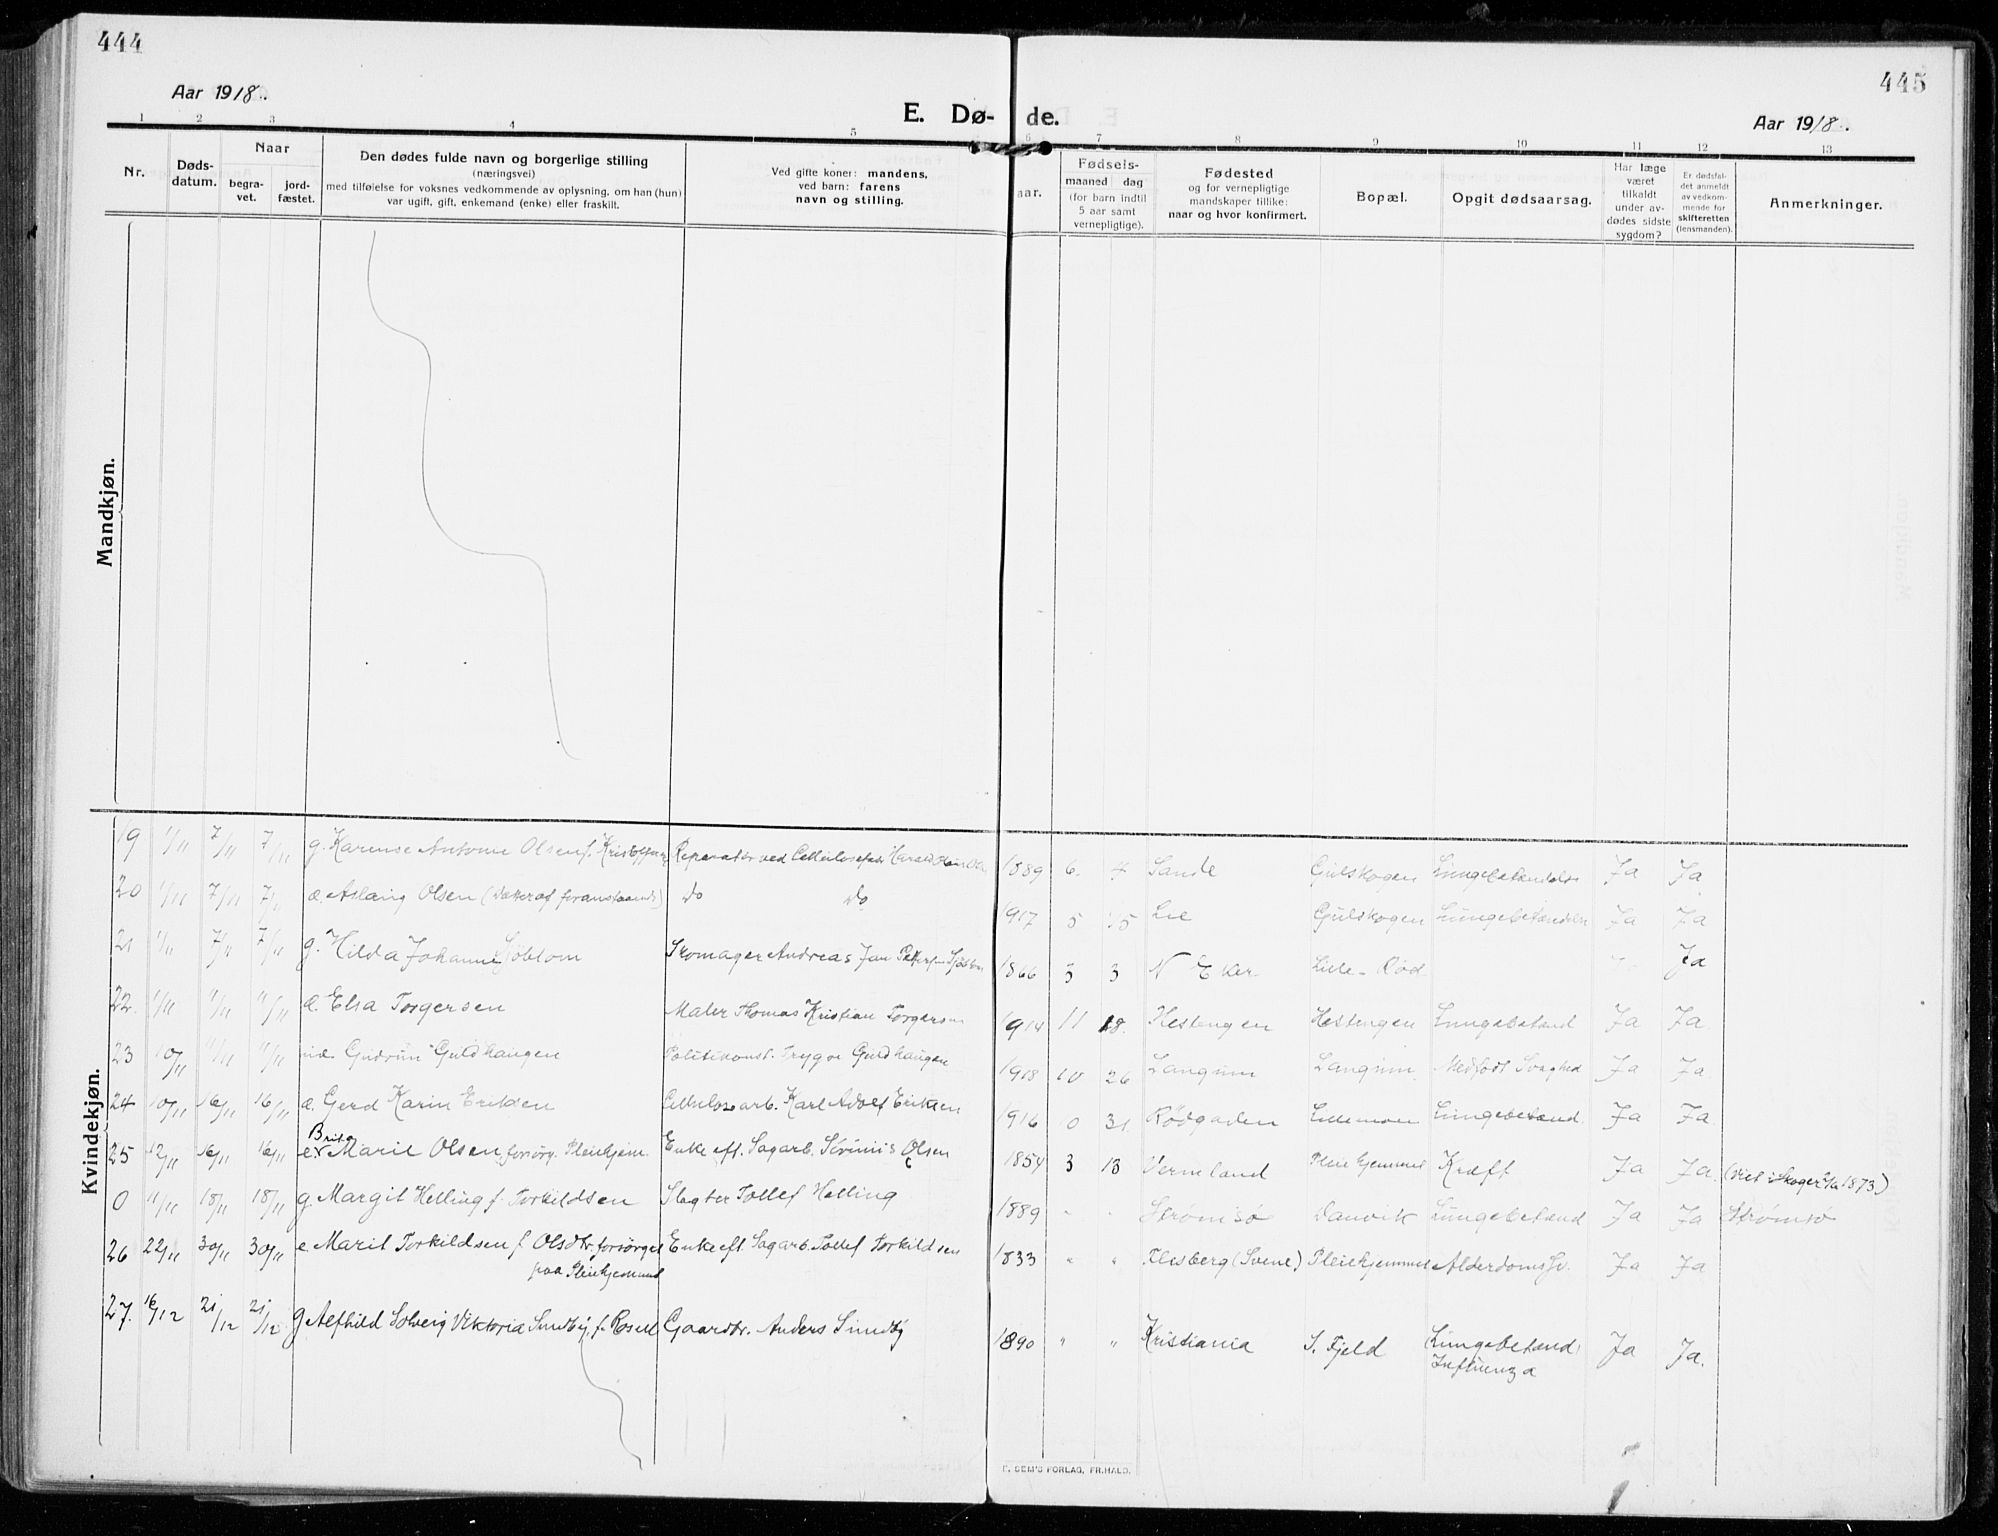 444
445
Aar 1918.
E. Dø-
de.
Aar 1918.
1 2 3 4 5 6 7 8 9 10 11 12 13
Nr.
Døds-
datum.
Naar
begra-
vet.
jord-
fæstet.
Den dødes fulde navn og borgerlige stilling
(næringsvei)
med tilføielse for voksnes vedkommende av oplysning, om han (hun)
var ugift, gift, enkemand (enke) eller fraskilt.
Ved gifte koner: mandens,
ved barn: farens
navn og stilling.
aar.
Fødsels-
maaned dag
(for barn indtil
5 aar samt
vernepligtige).
Fødested
og for vernepligtige
mandskaper tillike:
naar og hvor konfirmert.
Bopæl.
Opgit dødsaarsag.
Har læge
været
tilkaldt
under av-
dødes sidste
sygdom?
Er dødsfal-
det anmeldt
av vedkom-
mende for
skifteretten
(lensmanden).
Anmerkninger.
Mandkjøn.
Kvindekjøn.
19 1/11 7/11 7/11 g. Karense Antonie Olsen f. Reparatør ved Harald 1889 6. 4 Sande Gulskogen Lungebetændelse Ja Ja
20 1/11 7/11 7/11 æ. Aslaug Olsen (Datter af foranstaaende) Do Do 1917 5 15 Lie Gulskogen Lungebetændelse Ja Ja
21 1/11 7/11 7/11 g. Hilda Johanne Sjöblom Skomager Andreas Jan 1866 5 3 N Eker Lille-Rød Ja
22. 1/11 11/11 11/11 æ. Elsa Torgersen Maler Thomas Kristian Torgersen 1914 11 18. Hestengen Hestengen Lungebetænd Ja Ja
23 10/11 11/11 11/11 Gudrun Guldhaugen Politikonst. Trygve Guldhaugen 1918 10 26 Langum Langum Medfødt Svaghed Ja Ja
24 10/11 16/11 16/11 æ. Gerd Karin Eriksen Cellulosearb. Karl Adolf Eriksen 1916 10 31. Rødgaden Lillemoen Lungebetænd. Ja Ja
Brita
25 12/11 16/11 16/11 e. Marie Olsen, forsørg. Pleiehjem. Enke eft. Sagarb. Sørinus Olsen 1854 3 13 Vermland Pleiehjemmet Kræft Ja Ja (Viet i Skoger 1873)
0 11/11 18/11 18/11 g. Margit Helling f. Torkildsen Slagter Tollef Helling 1889 " " Strømsø Danvik Lungebetænd Ja Ja Strømsø
26 22/11 30/11 30/11 e. Marit Torkildsen f Olsdtr, forsørget Enke eft Sagarb. Tollef Torkildsen 1833 " " Flesberg (Svene) Pleiehjemmet Alderdomssv. Ja Ja
paa Pleiehjemmet
27. 16/12 21/12 21/12 g Alfhild Solveig Viktoria Sundby, f. Gaardbr. Anders Sundby 1890 " " Kristiania S. Fjeld Lungebetænd Ja Ja.
Influenza
F. GEM'S FORLAG, FR.HALD.